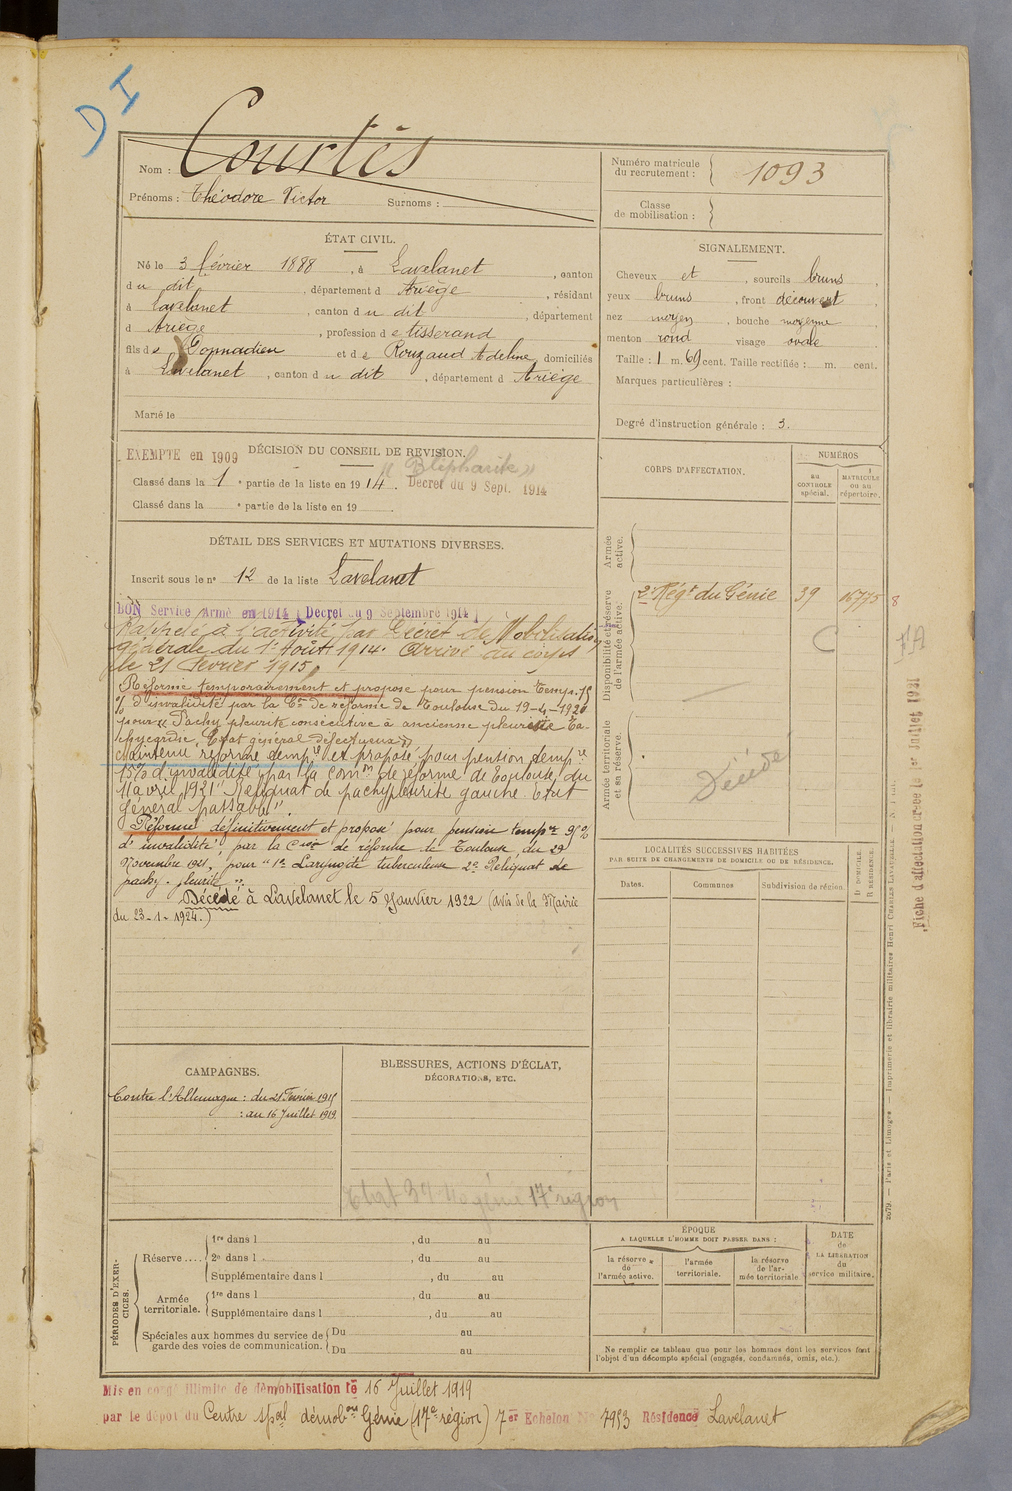 DI
Nom : Courtès
Prénoms : Théodore Victor Surnoms :
Numéro matricule
du recrutement : 1093
Classe
de mobilisation :
ÉTAT CIVIL.
Né le 3 février 1888, à Lavelanet, canton
du dit, département d Ariège, résidant
à Lavelanet, canton du dit, département
d Ariège, profession de tisserand
fils de et de Rouzaud Adeline, domiciliés
à Lavelanet, canton du dit, département d Ariège
Marié le
SIGNALEMENT.
Cheveux et, sourcils bruns,
yeux bruns, front découvert,
nez moyen, bouche moyenne,
menton rond visage ovale
Taille : 1 m. 69 cent. Taille rectifiée : m. cent.
Marques particulières :
Degré d'instruction générale : 3.
EXEMPTÉ en 1909 DÉCISION DU CONSEIL DE REVISION.
"Blépharite"
Classé dans la 1e partie de la liste en 1914. Décret du 9 Sept. 1914
Classé dans la e partie de la liste en 19
CORPS D'AFFECTATION.
NUMÉROS
au
CONTROLE
spécial.
MATRICULE
ou au
répertoire.
DÉTAIL DES SERVICES ET MUTATIONS DIVERSES.
Inscrit sous le no 12 de la liste Lavelanet
BON Service Armé en 1914 (Decret du 9 Septembre 1914)
Rappelé à l'activité par Décret de Mobilisation
générale du 1er Août 1914. Arrivé au corps
le 21 Février 1915.
Réformé temporairement et proposé pour pension temp. 15
% d'invalidité par la Con de réforme de Toulouse du 19-4-1920
pour "Pachy pleurite consécutive à ancienne pleurésie Ta-
chycardie, Etat général défectueux"
Maintenu réformé tempre et proposé pour pension tempre
15% d'invalidité par la Comon de réforme de Toulouse du
11 avril 1921 "Reliquat de pachypleurite gauche. Etat
général passable".
Réformé définitivement et proposé pour pension tempre 95%
d'invalidité par la Cion de réforme de Toulouse du 29
Novembre 1921, pour "1o Laryngite tuberculeuse 2o Reliquat de
pachy-pleurite".
Décédé à Lavelanet le 5 Janvier 1922 (avis de la Mairie
du 23-1-1924.)
Armée
active.
Disponibilité et réserve
de l'armée active.
2e Régt du Génie 39 16775 8
C
FA
Armée territoriale
et sa réserve.
Décédé
Fiche d'affectation créée le 1er Juillet 1921
LOCALITÉS SUCCESSIVES HABITÉES
PAR SUITE DE CHANGEMENTS DE DOMICILE OU DE RÉSIDENCE.
Dates. Communes Subdivision de région.
D. DOMICILE.
R. RÉSIDENCE.
2079. — Paris et Limoges. — Imprimerie et librairie militaires Henri CHARLES-LAVAUZELLE.
CAMPAGNES.
Contre l'Allemagne : du 21 Février 1915
: au 16 Juillet 1919
BLESSURES, ACTIONS D'ÉCLAT,
DÉCORATIONS, ETC.
génie 17e région
PÉRIODES D'EXER-
CICES.
Réserve....
1re dans l , du au
2e dans l , du au
Supplémentaire dans l , du au
Armée
territoriale.
1re dans l , du au
Supplémentaire dans l , du au
Spéciales aux hommes du service de
garde des voies de communication.
Du au
Du au
ÉPOQUE
A LAQUELLE L'HOMME DOIT PASSER DANS :
la réserve
de
l'armée active.
l'armée
territoriale.
la réserve
de l'ar-
mée territoriale
DATE
de
LA LIBÉRATION
du
service militaire.
Ne remplir ce tableau que pour les hommes dont les services font
l'objet d'un décompte spécial (engagés, condamnés, omis, etc.).
Mis en congé illimité de démobilisation le 16 Juillet 1919
par le dépôt du Centre spal démobon Génie (17e région) 7er Echelon No 7953 Résidence Lavelanet